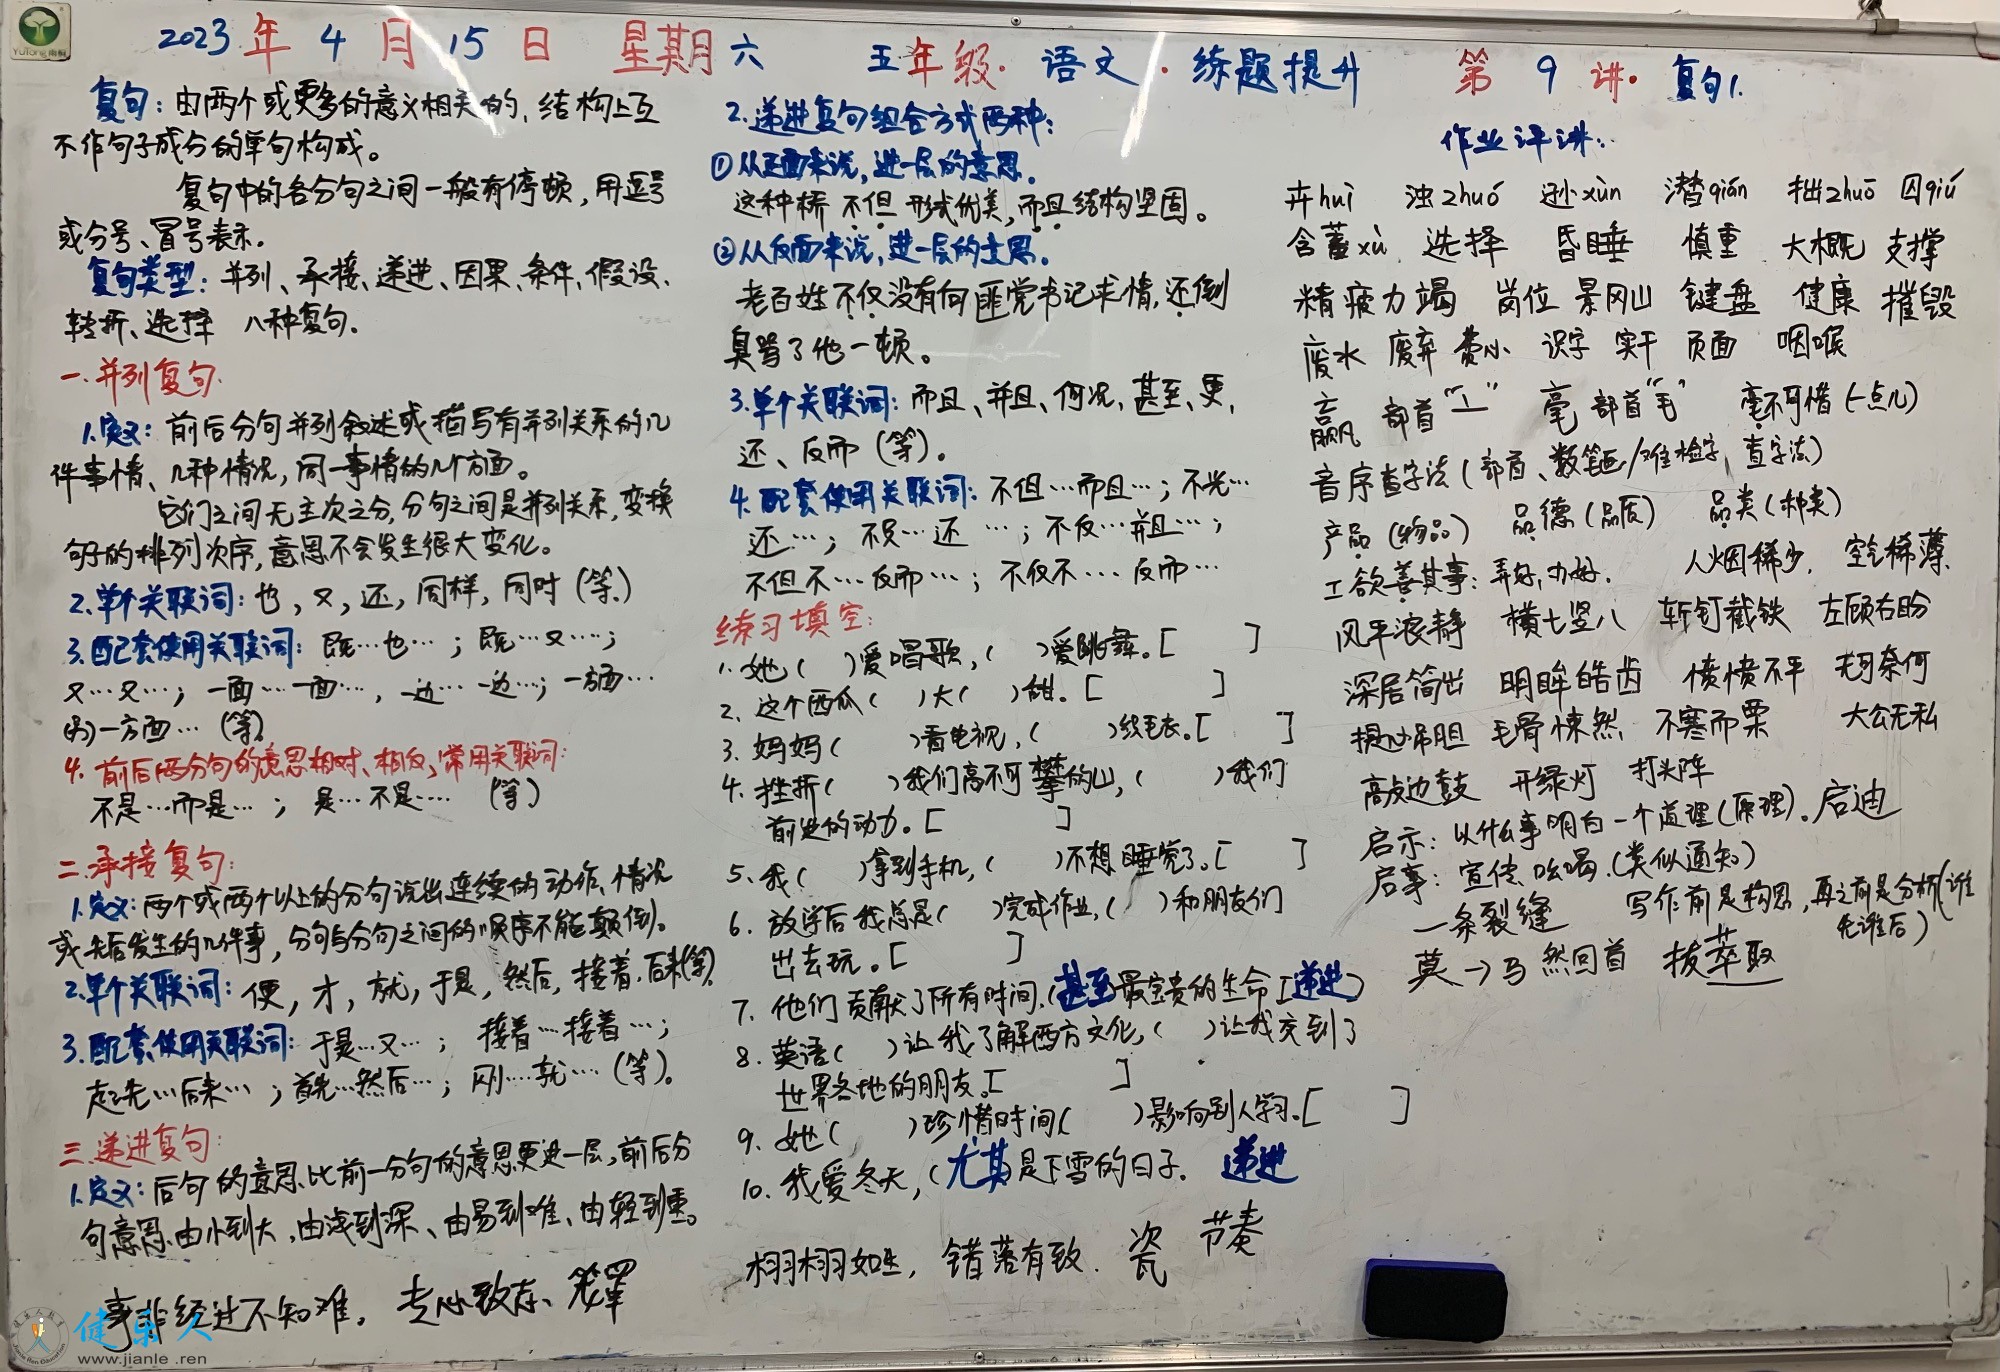 2023年4月15日 星期六 五年级·语文·练题提升 第9讲·复句1.
复句：由两个或更多的意义相关的，结构上互
不作句子成分的单句构成。
复句中的各分句之间一般有停顿，用逗号
或分号、冒号表示。
复句类型：并列、承接、递进、因果、条件、假设、
转折、选择 八种复句。
一.并列复句.
1.定义：前后分句并列叙述或描写有并列关系的几
件事情、几种情况，同一事情的几个方面。
它们之间无主次之分，分句之间是并列关系，变换
句子的排列次序，意思不会发生很大变化。
2.单个关联词：也，又，还，同样，同时（等）
3.配套使用关联词：既…也…；既…又…；
又…又…；一面…一面…，一边…一边…；一方面…
(另)一方面…（等）
4.前后两分句的意思相对、相反，常用关联词：
不是…而是…；是…不是…（等）
二.承接复句：
1.定义：两个或两个以上的分句说出连续的动作、情况
或先后发生的几件事，分句与分句之间的顺序不能颠倒。
2.单个关联词：便，才，就，于是，然后，接着，后来(等)
3.配套使用关联词：于是…又…；接着…接着…；
起先…后来…；首先…然后…；刚…就…（等）。
三.递进复句：
1.定义：后句的意思比前一分句的意思更进一层，前后分
句意思由小到大，由浅到深、由易到难、由轻到重。
事非经过不知难。 专心致志、笼罩
2.递进复句组合方式两种：
①从正面来说，进一层的意思。
这种桥不但形式优美，而且结构坚固。
②从反面来说，进一层的意思。
老百姓不仅没有向匪党书记求情，还倒
臭骂了他一顿。
3.单个关联词：而且、并且、何况、甚至、更、
还、反而（等）。
4.配套使用关联词：不但…而且…；不光…
还…；不只…还…；不仅…并且…；
不但不…反而…；不仅不…反而…
练习填空：
1.她（ ）爱唱歌，（ ）爱跳舞。[ ]
2.这个西瓜（ ）大（ ）甜。[ ]
3.妈妈（ ）看电视，（ ）织毛衣。[ ]
4.挫折（ ）我们高不可攀的山，（ ）我们
前进的动力。[ ]
5.我（ ）拿到手机，（ ）不想睡觉了。[ ]
6.放学后我总是（ ）完成作业，（ ）和朋友们
出去玩。[ ]
7.他们贡献了所有时间，（甚至）最宝贵的生命[递进]
8.英语（ ）让我了解西方文化，（ ）让我交到了
世界各地的朋友。[ ]
9.她（ ）珍惜时间（ ）影响别人学习。[ ]
10.我爱冬天，（尤其）是下雪的日子. 递进
栩栩如生，错落有致. 瓷 节奏
作业评讲：
卉huì 浊zhuó 逊xùn 潜qián 拙zhuō 囚qiú
含蓄xù 选择 昏睡 慎重 大概 支撑
精疲力竭 岗位 景冈山 键盘 健康 摧毁
废水 废弃 费心 识字 实干 页面 咽喉
赢 部首“亠” 毫 部首“毛” 毫不可惜（一点儿）
音序查字法（部首、数笔画/难检字，查字法）
产品（物品） 品德（品质） 品类（种类）
工欲善其事：弄好，办好. 人烟稀少. 空气稀薄.
风平浪静 横七竖八 斩钉截铁 左顾右盼
深居简出 明眸皓齿 愤愤不平 无可奈何
提心吊胆 毛骨悚然 不寒而栗 大公无私
敲边鼓 开绿灯 打头阵
启示：以什么事明白一个道理（原理）。启迪
启事：宣传 吆喝.（类似通知）
一条裂缝 写作前是构思，再之前是分析（谁
先谁后）
莫→马 然回首 拔萃取
健乐人
www.jianle.ren